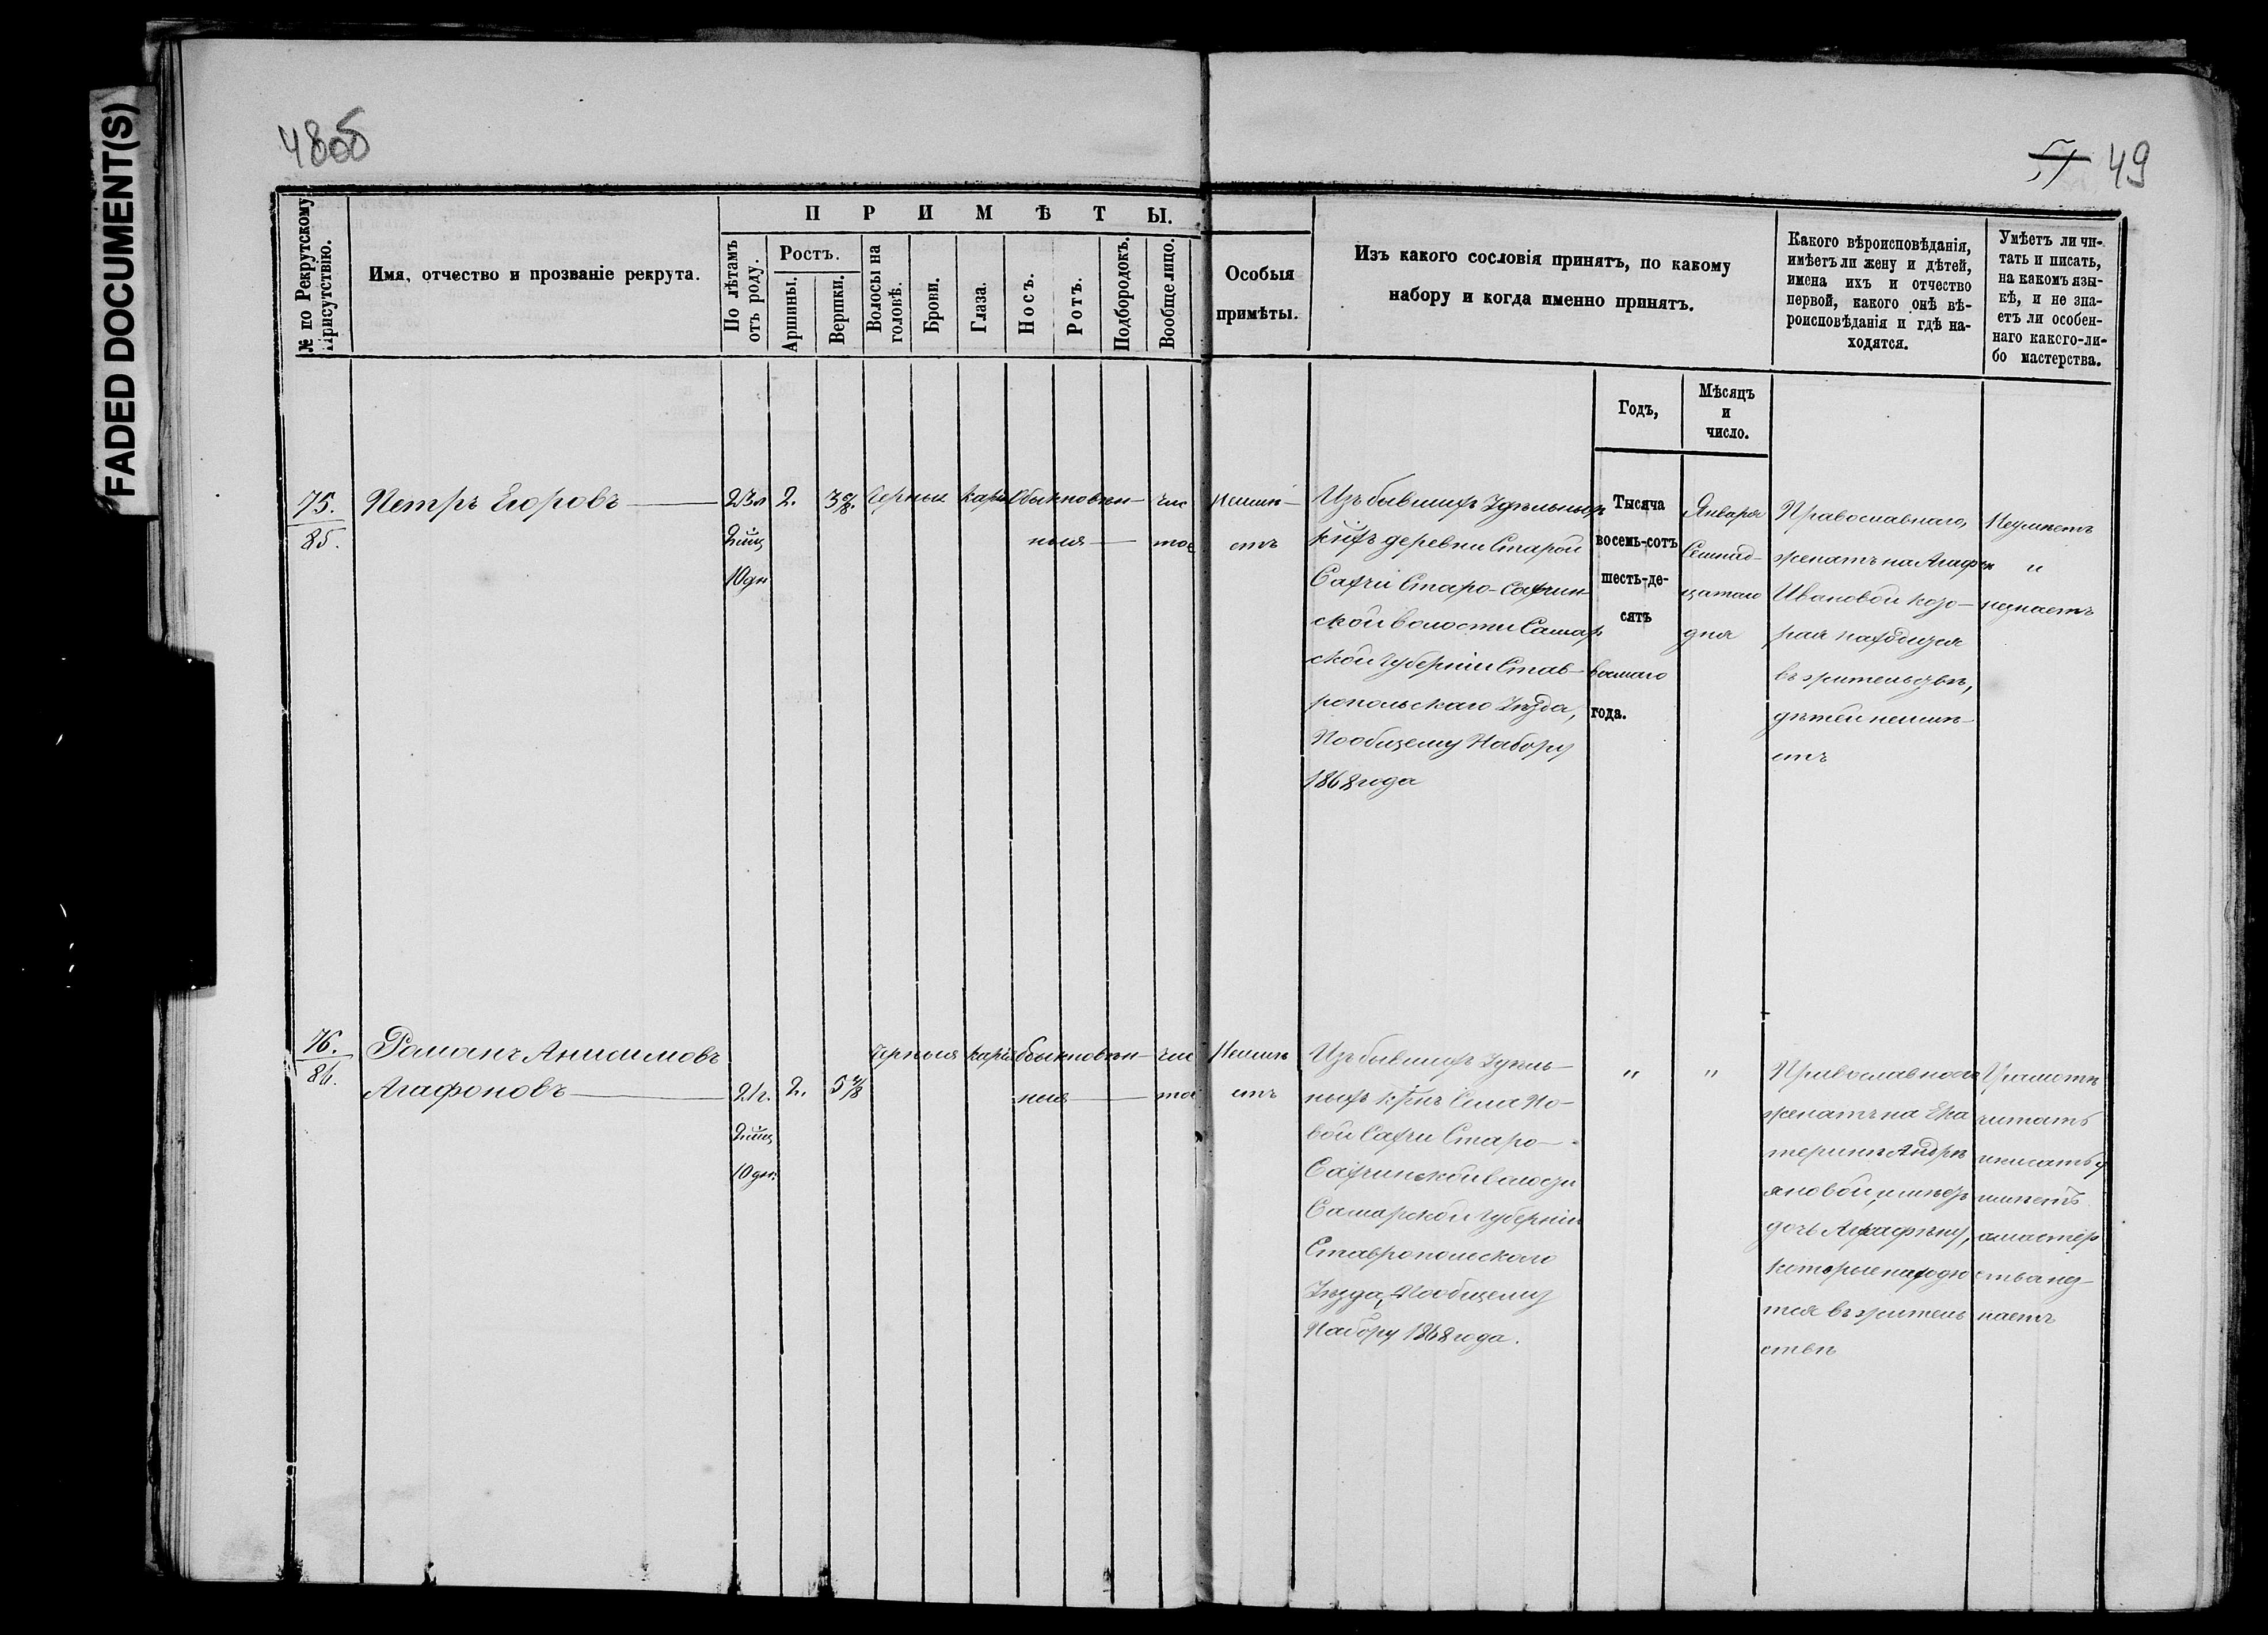 FADED DOCUMENT(S)
48об
51 49
№ по Рекрутскому Присутствію.
Имя, отчество и прозваніе рекрута.
ПРИМѢТЫ.
По лѣтамъ отъ роду.
Ростъ.
Аршины.
Вершки.
Волосы на головѣ.
Брови.
Глаза.
Носъ.
Ротъ.
Подбородокъ.
Вообще лицо.
Особыя
примѣты.
Изъ какого сословія принятъ, по какому
набору и когда именно принятъ.
Какого вѣроисповѣданія,
имѣетъ ли жену и дѣтей,
имена ихъ и отчество
первой, какого онѣ вѣ-
роисповѣданія и гдѣ на-
ходятся.
Умѣетъ ли чи-
тать и писать,
на какомъ язы-
кѣ, и не зна-
етъ ли особен-
наго какого-ли-
бо мастерства.
Годъ,
Мѣсяцъ
и
число.
75.
85.
Петръ Егоровъ
23л
2мѣц
10дн
2.
3
Черныя
кари
Обыкновен-
ныя
чис
тое
Неимѣ-
етъ
Изъ бывшихъ Удѣльныхъ
деревни Старой
Сахчи Старо-Сахчин
ской волости Самар
ской Губерніи Став-
ропольскаго Уѣзда,
По общему Набору
1868 года
Тысяча
восемь-сотъ
шесть-де-
сятъ
восьмаго
года.
Января
Семнад-
цатаго
дня
Православнаго,
женатъ на Агафьи
Ивановой кото-
рая находится
въ жительствѣ,
дѣтей неимѣ-
етъ
Неумѣетъ
"
незнаетъ
76.
86.
Романъ Анисимовъ
Агафоновъ
21г.
2мѣц
10дн.
2.
5
Черныя
кари
Обыкновен-
ныя
чис
тое
Неимѣ
етъ
Изъ бывшихъ Удѣль-
ныхъ крнъ Села Но-
вой Сахчи Старо-
Сахчинской волости
Самарской Губерніи
Ставропольскаго
Уѣзда, По общему
Набору 1868 года.
"
"
Православнаго
женатъ на Ека
теринѣ Андрѣ
яновой, имѣетъ
дочь Аграфѣну,
которые находю
тся въ житель
ствѣ
Грамотѣ
читать
иписать у
мѣетъ
амастер
ства нез-
наетъ